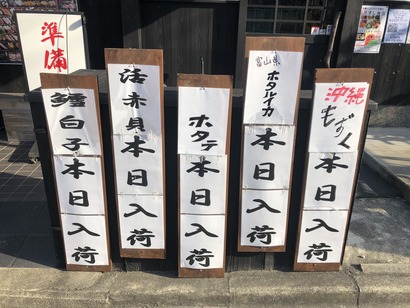 準備
鱈白子
本日入荷
活赤貝
本日入荷
ホタテ
本日入荷
富山県
ホタルイカ
本日入荷
沖縄
もずく
本日入荷